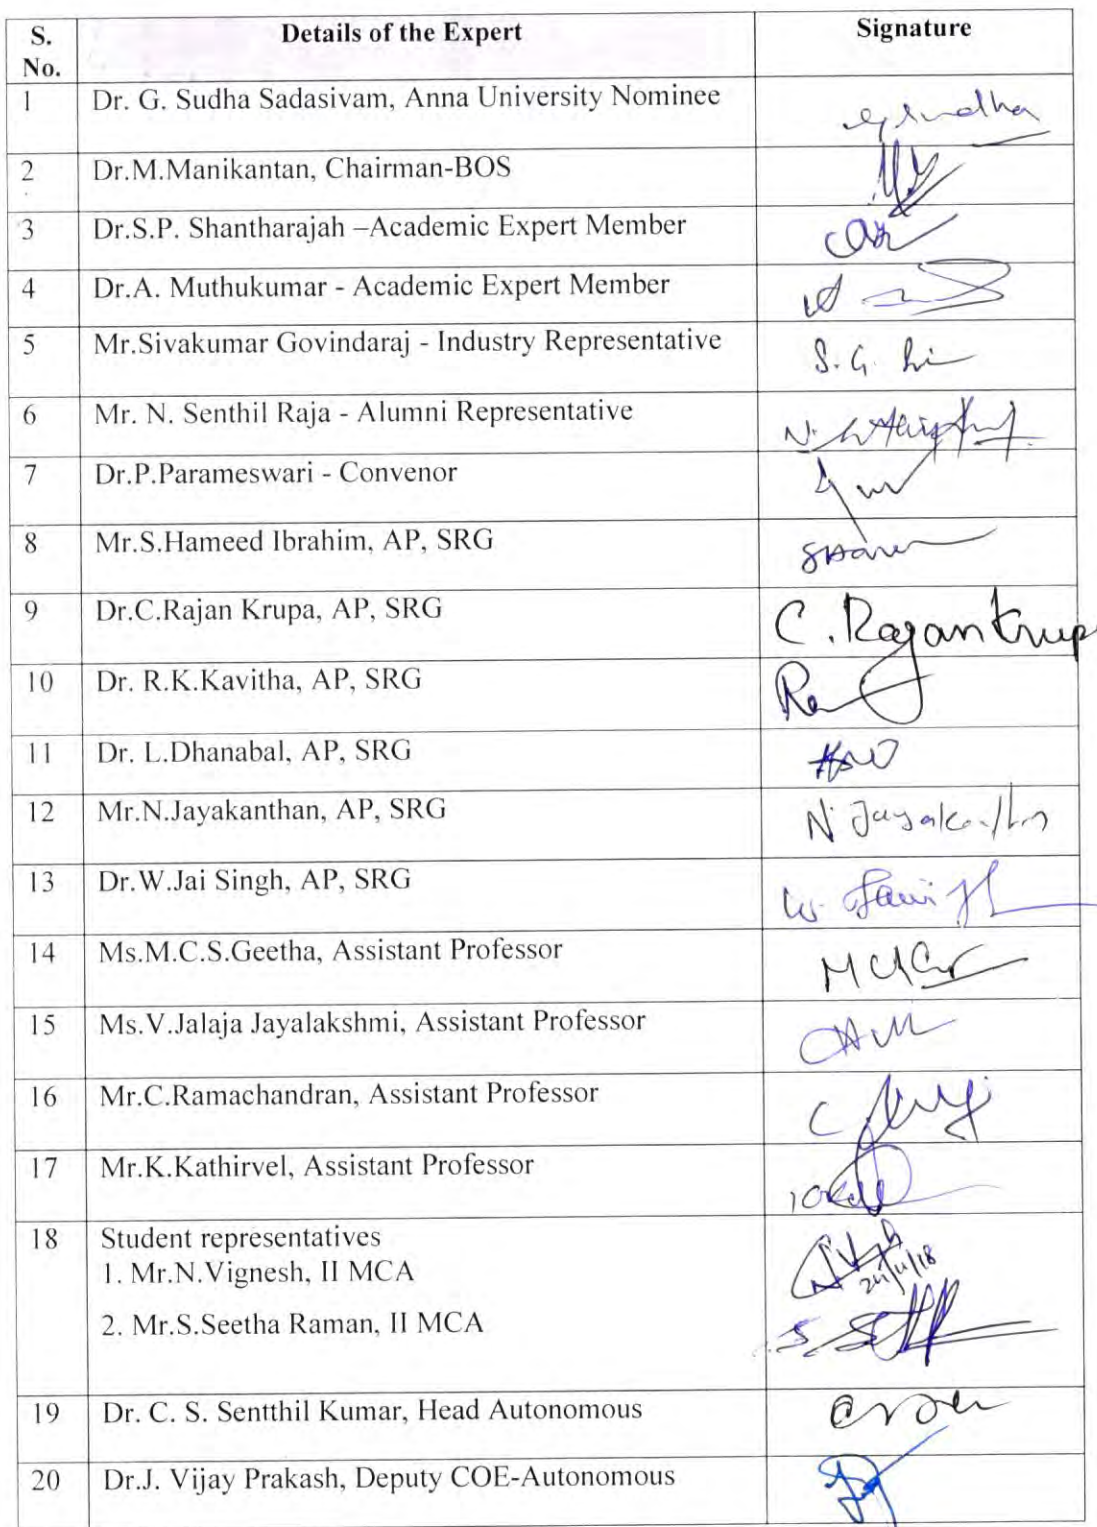 S. No. Details of the Expert Signature
1 Dr. G. Sudha Sadasivam, Anna University Nominee
2 Dr.M.Manikantan, Chairman-BOS
3 Dr.S.P. Shantharajah –Academic Expert Member
4 Dr.A. Muthukumar - Academic Expert Member
5 Mr.Sivakumar Govindaraj - Industry Representative S.G.
6 Mr. N. Senthil Raja - Alumni Representative
7 Dr.P.Parameswari - Convenor
8 Mr.S.Hameed Ibrahim, AP, SRG
9 Dr.C.Rajan Krupa, AP, SRG C.Rajan Krup
10 Dr. R.K.Kavitha, AP, SRG
11 Dr. L.Dhanabal, AP, SRG
12 Mr.N.Jayakanthan, AP, SRG N Jayakanthan
13 Dr.W.Jai Singh, AP, SRG
14 Ms.M.C.S.Geetha, Assistant Professor
15 Ms.V.Jalaja Jayalakshmi, Assistant Professor
16 Mr.C.Ramachandran, Assistant Professor
17 Mr.K.Kathirvel, Assistant Professor
18 Student representatives
1. Mr.N.Vignesh, II MCA
2. Mr.S.Seetha Raman, II MCA
19 Dr. C. S. Sentthil Kumar, Head Autonomous
20 Dr.J. Vijay Prakash, Deputy COE-Autonomous